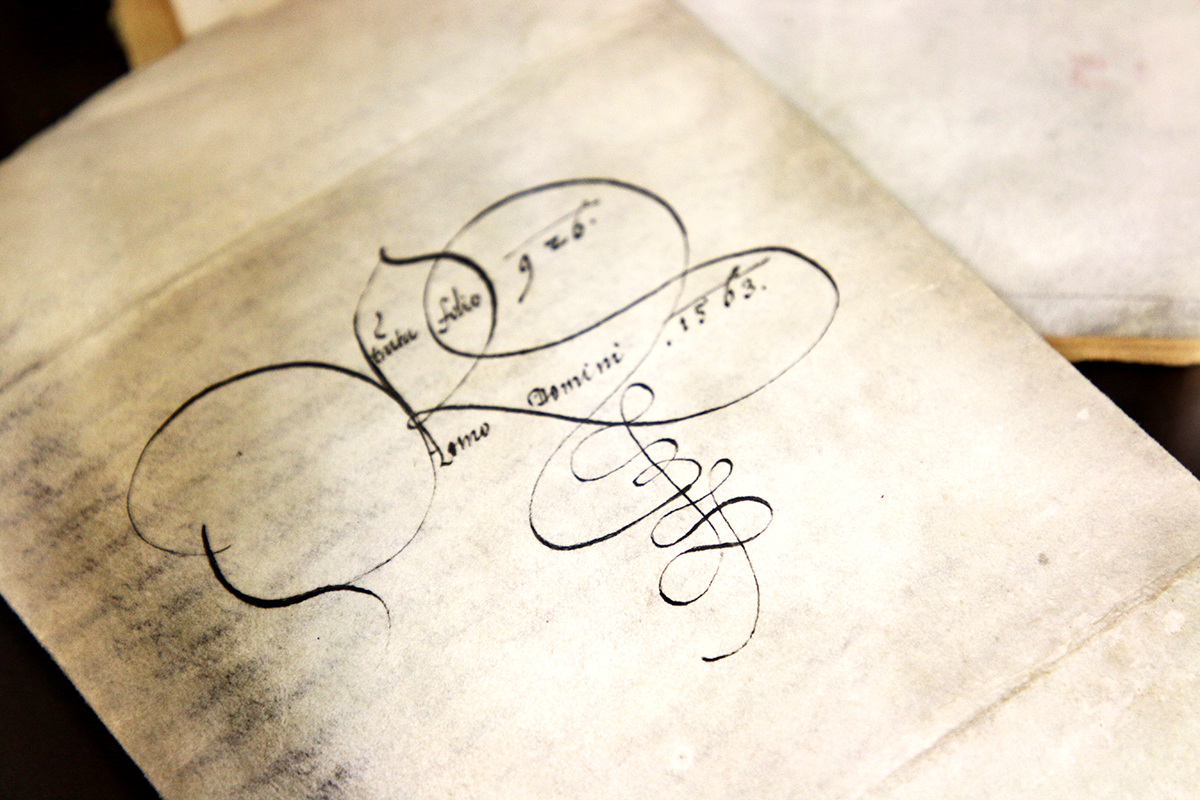 folio 926.
Anno Domini .1563.